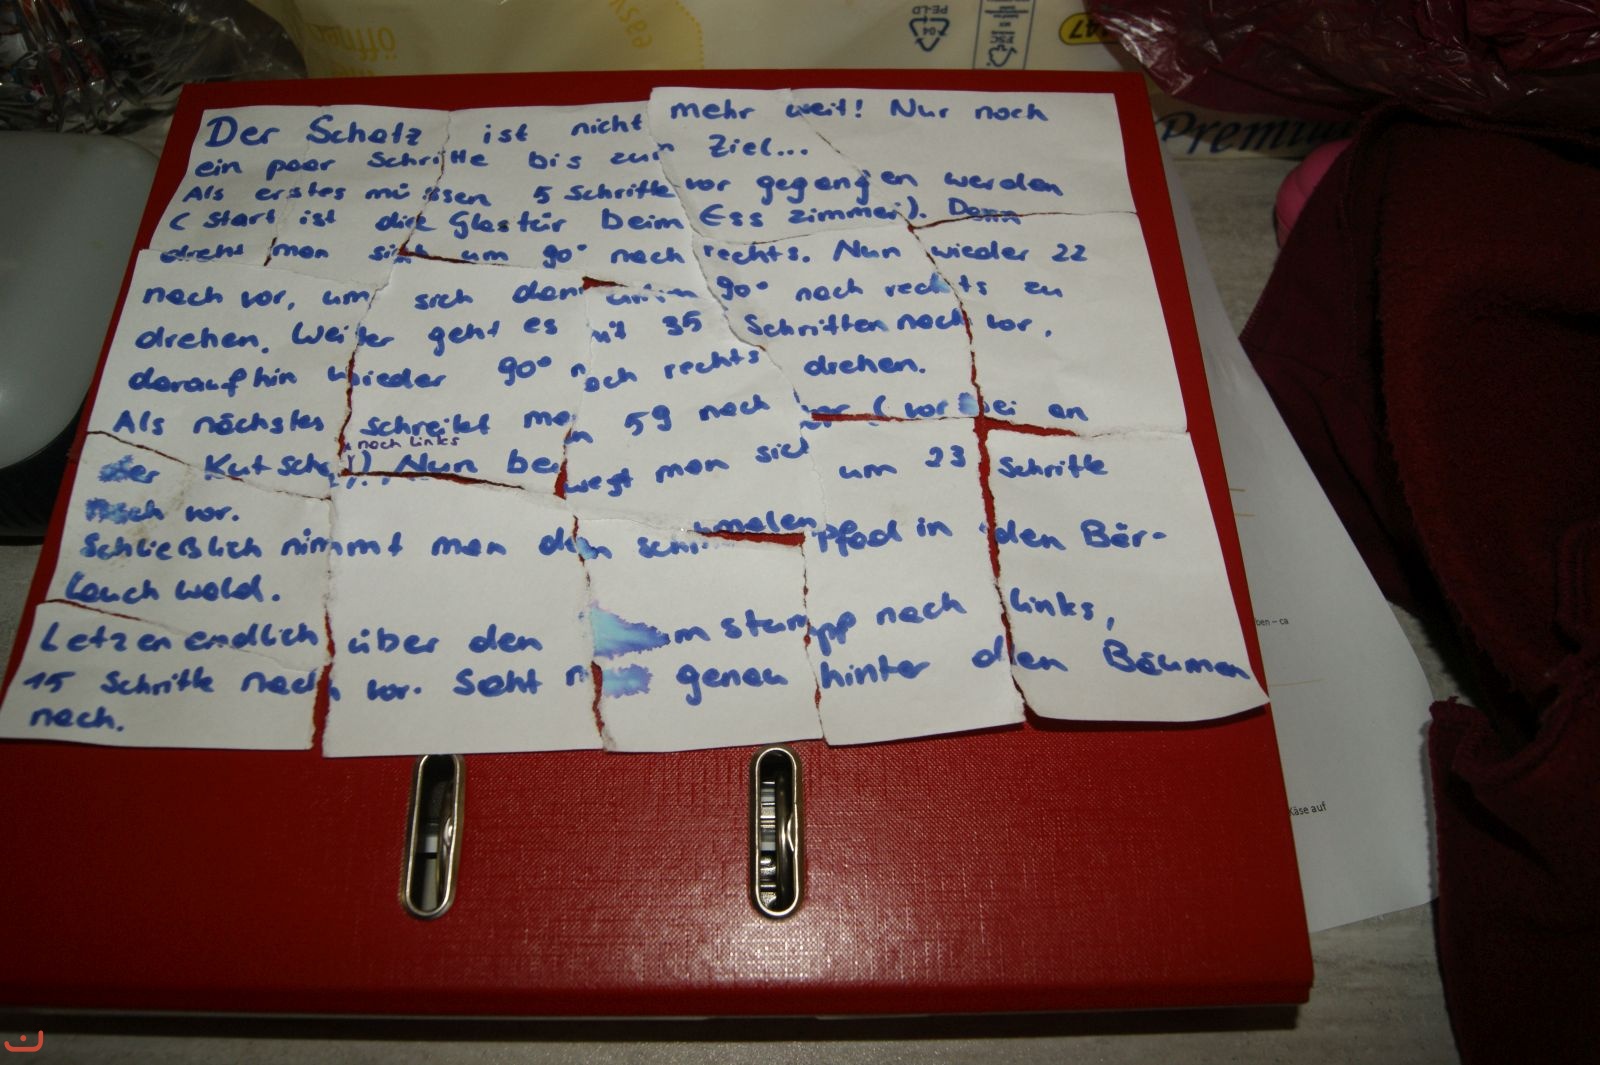 öffnen
easy
04
PE-LD
FSC
47
Premium
Der Schatz ist nicht mehr weit! Nur noch
ein paar Schritte bis zum Ziel...
Als erstes müssen 5 Schritte vor gegangen werden
( Start ist die Glastür beim Esszimmer). Dann
dreht man sich um 90° nach rechts. Nun wieder 22
nach vor, um sich dann um 90° nach rechts zu
drehen. Weiter geht es mit 35 Schritten nach vor,
daraufhin wieder 90° nach rechts drehen.
Als nächstes schreitet man 59 nach vor (vorbei an
nach links
der Kutsche). Nun bewegt man sich um 23 Schritte
nach vor.
Schließlich nimmt man den schmalen Pfad in den Bär-
lauch wald.
Letzenendlich über den mstumpf nach links,
15 Schritte nach vor. Seht genau hinter den Bäumen
nach.
ben – ca
Käse auf